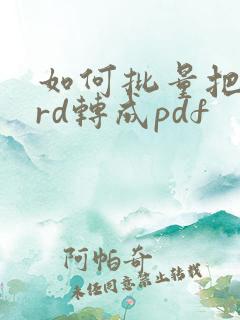 如何批量把
rd轉成pdf
阿帕奇
未经同意禁止转载